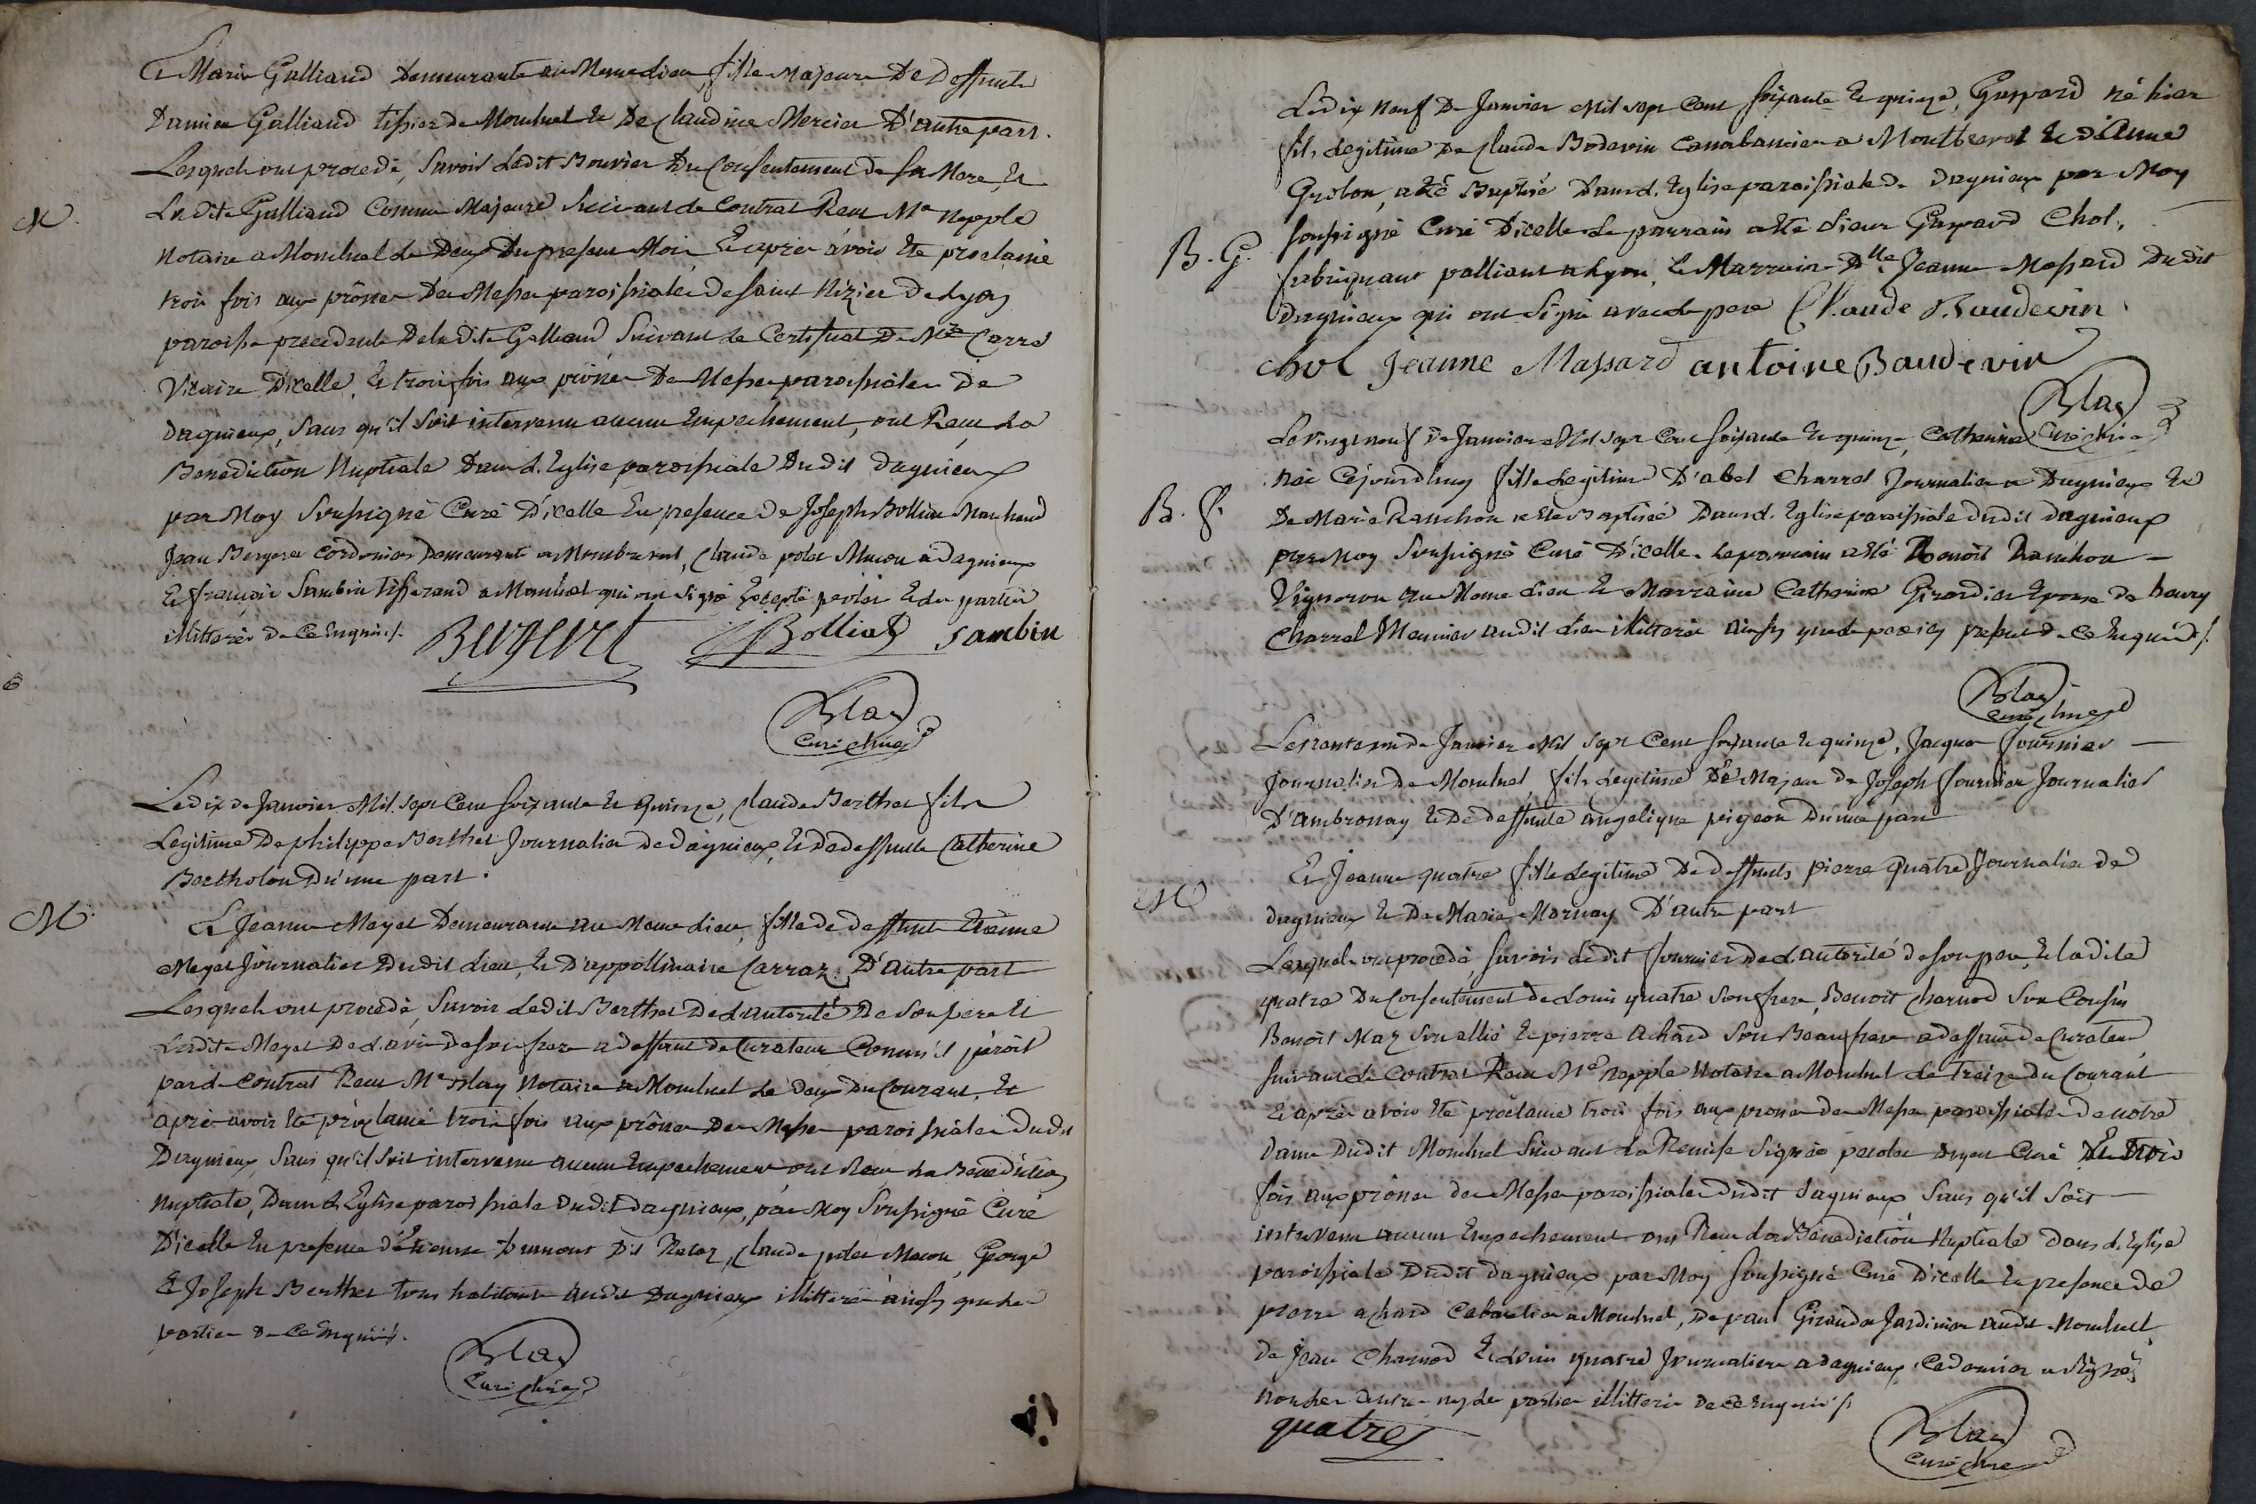 Et Marie Galliand Demeurante au Meme lieu, fille Majeure De Deffunts
Damien Galliand tissier de Montluel et De Claudine Mercier D'autre part.
Lesquels ont procedé, Savoir Ledit Bouvier Du Consentement de Sa Mere, Et
La dite Galliand Comme Majeure Suivant le Contrat Recu Me Nepple
M.
Notaire a Montluel le Deux Du present Mois, Et après avoir Eté proclamé
trois fois aux prônes Des Messes paroissiales de Saint Nizier de Lyon
paroisse precedente De ladite Galliand Suivant le Certificat De Mre Carra
Vicaire D'icelle, Et trois fois aux prônes Des Messes paroissiales De
Dagnieux, Sans qu'il Soit intervenu aucun Empechement, ont Recu La
Benediction Nuptiale Dans L'Eglise paroissiale Dudit Dagnieux
par Moy Soussigné Curé D'icelle En presence de Joseph Bolliat Marchand
Jean Bergeret Cordonier Demeurants a Montluel, Claude polet Macon a Dagnieux
Et françois Sambin tisserand a Montluel qui ont Signé Excepté polet Et les parties
illitterés De Ce Enquis.
Bergeret Bolliat Sambin
Blay
Curé
6
Le dix de Janvier Mil Sept Cent Soixante Et Quinze, Claude Berthet fils
Legitime De philippe Berthet Journalier de Dagnieux, Et De deffunte Catherine
Bertholon D'une part.
M.
Et Jeanne Meyet Demeurante au Meme Lieu, fille de deffunt Etienne
Meyet Journalier Dudit Lieu, Et D'appollinaire Carraz, D'autre part
Lesquels ont procedé, Savoir Ledit Berthet De L'autorité De Son pere Et
Ladite Meyet De L'avis de Son frere a deffaut de Curateur Comm'il paroit
par le Contrat Recu Me Blay Notaire a Montluel Le Deux Du Courant, Et
après avoir Eté proclamé trois fois aux prônes Des Messes paroissiales Dudit
Dagnieux Sans qu'il Soit intervenu aucun Empechement, ont Recu La Benediction
Nuptiale, Dans L'Eglise paroissiale Dudit Dagnieux, par Moy Soussigné Curé
D'icelle En presence d'Etienne Dit Claude polet Macon, George
Et Joseph Berthet tous habitants Audit Dagnieux illitterés ainsy que les
parties De Ce Enquis.
Blay
Curé
Le dix neuf De Janvier Mil Sept Cent Soixante Et quinze, Gaspard né hier
fils Legitime De Claude Bodevin Cannabassier a Montluel Et d'Anne
Grobon, a Eté Baptisé Dans L'Eglise paroissiale de Dagnieux par Moy
Soussigné Curé D'icelle Le parrain a Eté Sieur Gaspard Chol,
B. G.
fabriquant a Lyon, La Marraine Dlle Jeanne Massard Dudit
Dagnieux qui ont Signé avec le pere Claude Baudevin
Chol Jeanne Massard antoine Baudevin
Blay
Curé
Le vingt neuf De Janvier Mil Sept Cent Soixante Et quinze, Catherine
née Cejourdhuy fille Legitime D'abel Charrel Journalier a Dagnieux Et
B. f.
De Marie Ranchon a Eté Baptisée Dans L'Eglise paroissiale dudit Dagnieux
par Moy Soussigné Curé D'icelle. Le parrain a Eté Benoit Ranchon
Vigneron au Meme Lieu Et Marraine Catherine Girardier Epouse de henry
Charrel Meunier audit Lieu illitterés ainsy que le pere icy present De Ce Enquis.
Blay
Curé
Le trente un De Janvier Mil Sept Cent Soixante Et quinze, Jacques fournier
Journalier De Montluel, fils Legitime Et Majeur De Joseph fournier Journalier
D'ambronay Et De deffunte angelique peigeon D'une part
Et Jeanne quatre fille Legitime De deffunts pierre Quatre Journalier de
M
Dagnieux Et De Marie Mornay D'autre part
Lesquels ont procedé, Savoir Ledit fournier de L'autorité de Son pere, Et ladite
quatre Du Consentement De Louis quatre Son frere, Benoit Charnod Son Cousin
Benoit Maz Son allié Et pierre achard Son Beaufrere a deffaut De Curateur
Suivant le Contrat Recu Me Nepple Notaire a Montluel Le treize du Courant
Et après avoir Eté proclamé trois fois aux prones des Messes paroissiales de notre
Dame Dudit Montluel Suivant La Remise Signée Curé Et trois
fois aux prônes des Messes paroissiales dudit Dagnieux Sans qu'il Soit
intervenu aucun Empechement ont Recu La Bénédiction Nuptiale Dans L'Eglise
paroissiale Dudit Dagnieux par Moy Soussigné Curé D'icelle En presence de
pierre achard Cabaretier a Montluel, De paul Giraudet Jardinier audit Montluel
De Jean Charnod Et Louis quatre Journaliers a Dagnieux, Ce dernier a Signé,
non les autres ny les parties illitterés De Ce Enquis
quatre
Blay
Curé